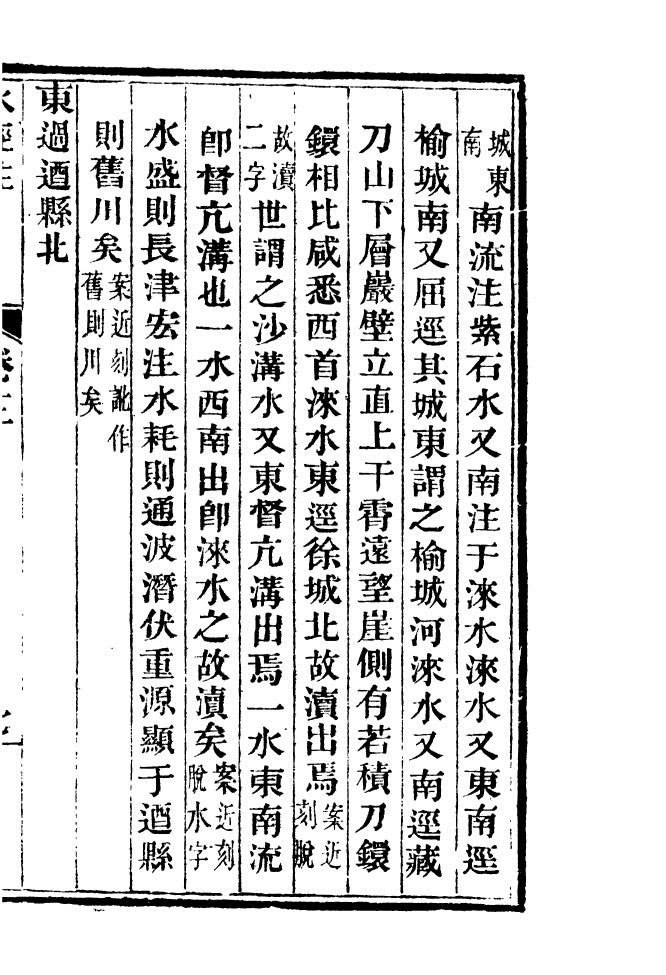 城東南南流注紫石水又南注于淶水淶水又東南逕
榆城南又屈逕其城東謂之榆城河淶水又南逕藏
刀山下層巖壁立直上干霄遠望崖側有若積刀鐶
鐶相比咸悉西首淶水東逕徐城北故瀆出焉案近刻脫
故瀆二字世謂之沙溝水又東督亢溝出焉一水東南流
卽督亢溝也一水西南出卽淶水之故瀆矣案近刻脫水字
水盛則長津宏注水耗則通波潛伏重源顯于遒縣
則舊川矣案近刻訛作舊則川矣
東過遒縣北
水經注 卷十二